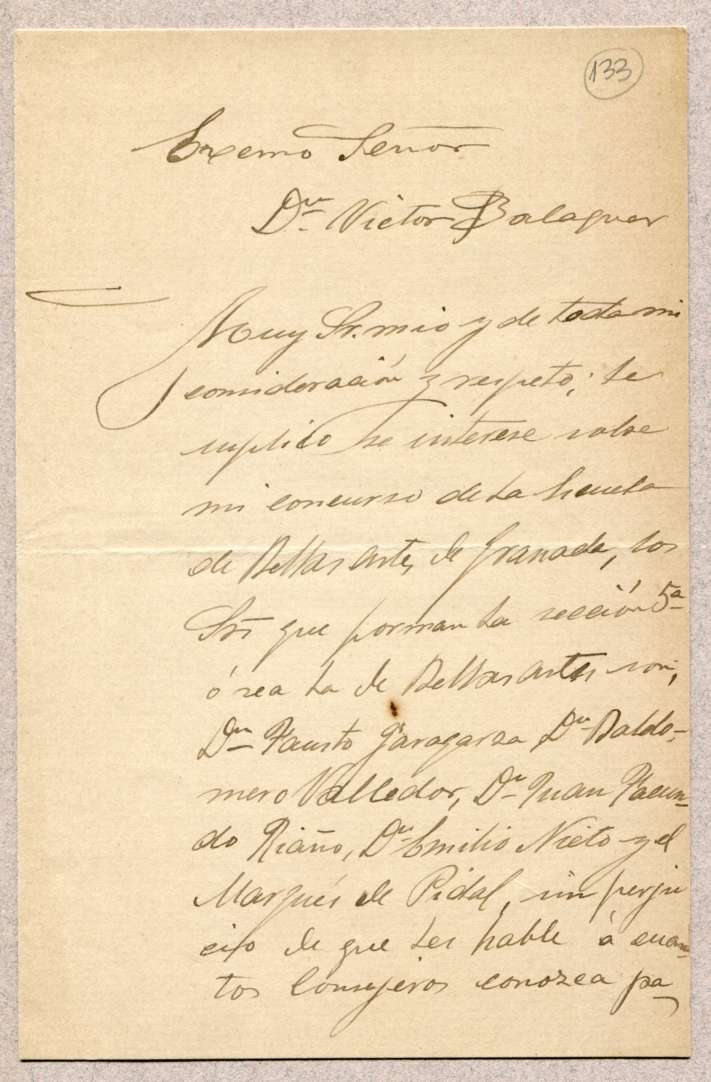 133
Excmo Señor
Dn Victor Balaguer
Muy Sr. mio y de toda mi
consideración y respeto; le
suplico se interese sobre
mi concurso de la Escuela
de Bellas Artes de Granada, los
Srs que forman la sección 5ª
ó sea la de Bellas Artes son,
Dn Fausto Garagarza Dn Baldo-
mero Valledor, Dn Juan Facun-
do Riaño, Dn Emilio Nieto y el
Marqués de Pidal, sin perju
cio de que les hable á cuan-
tos Consejeros conozca pa